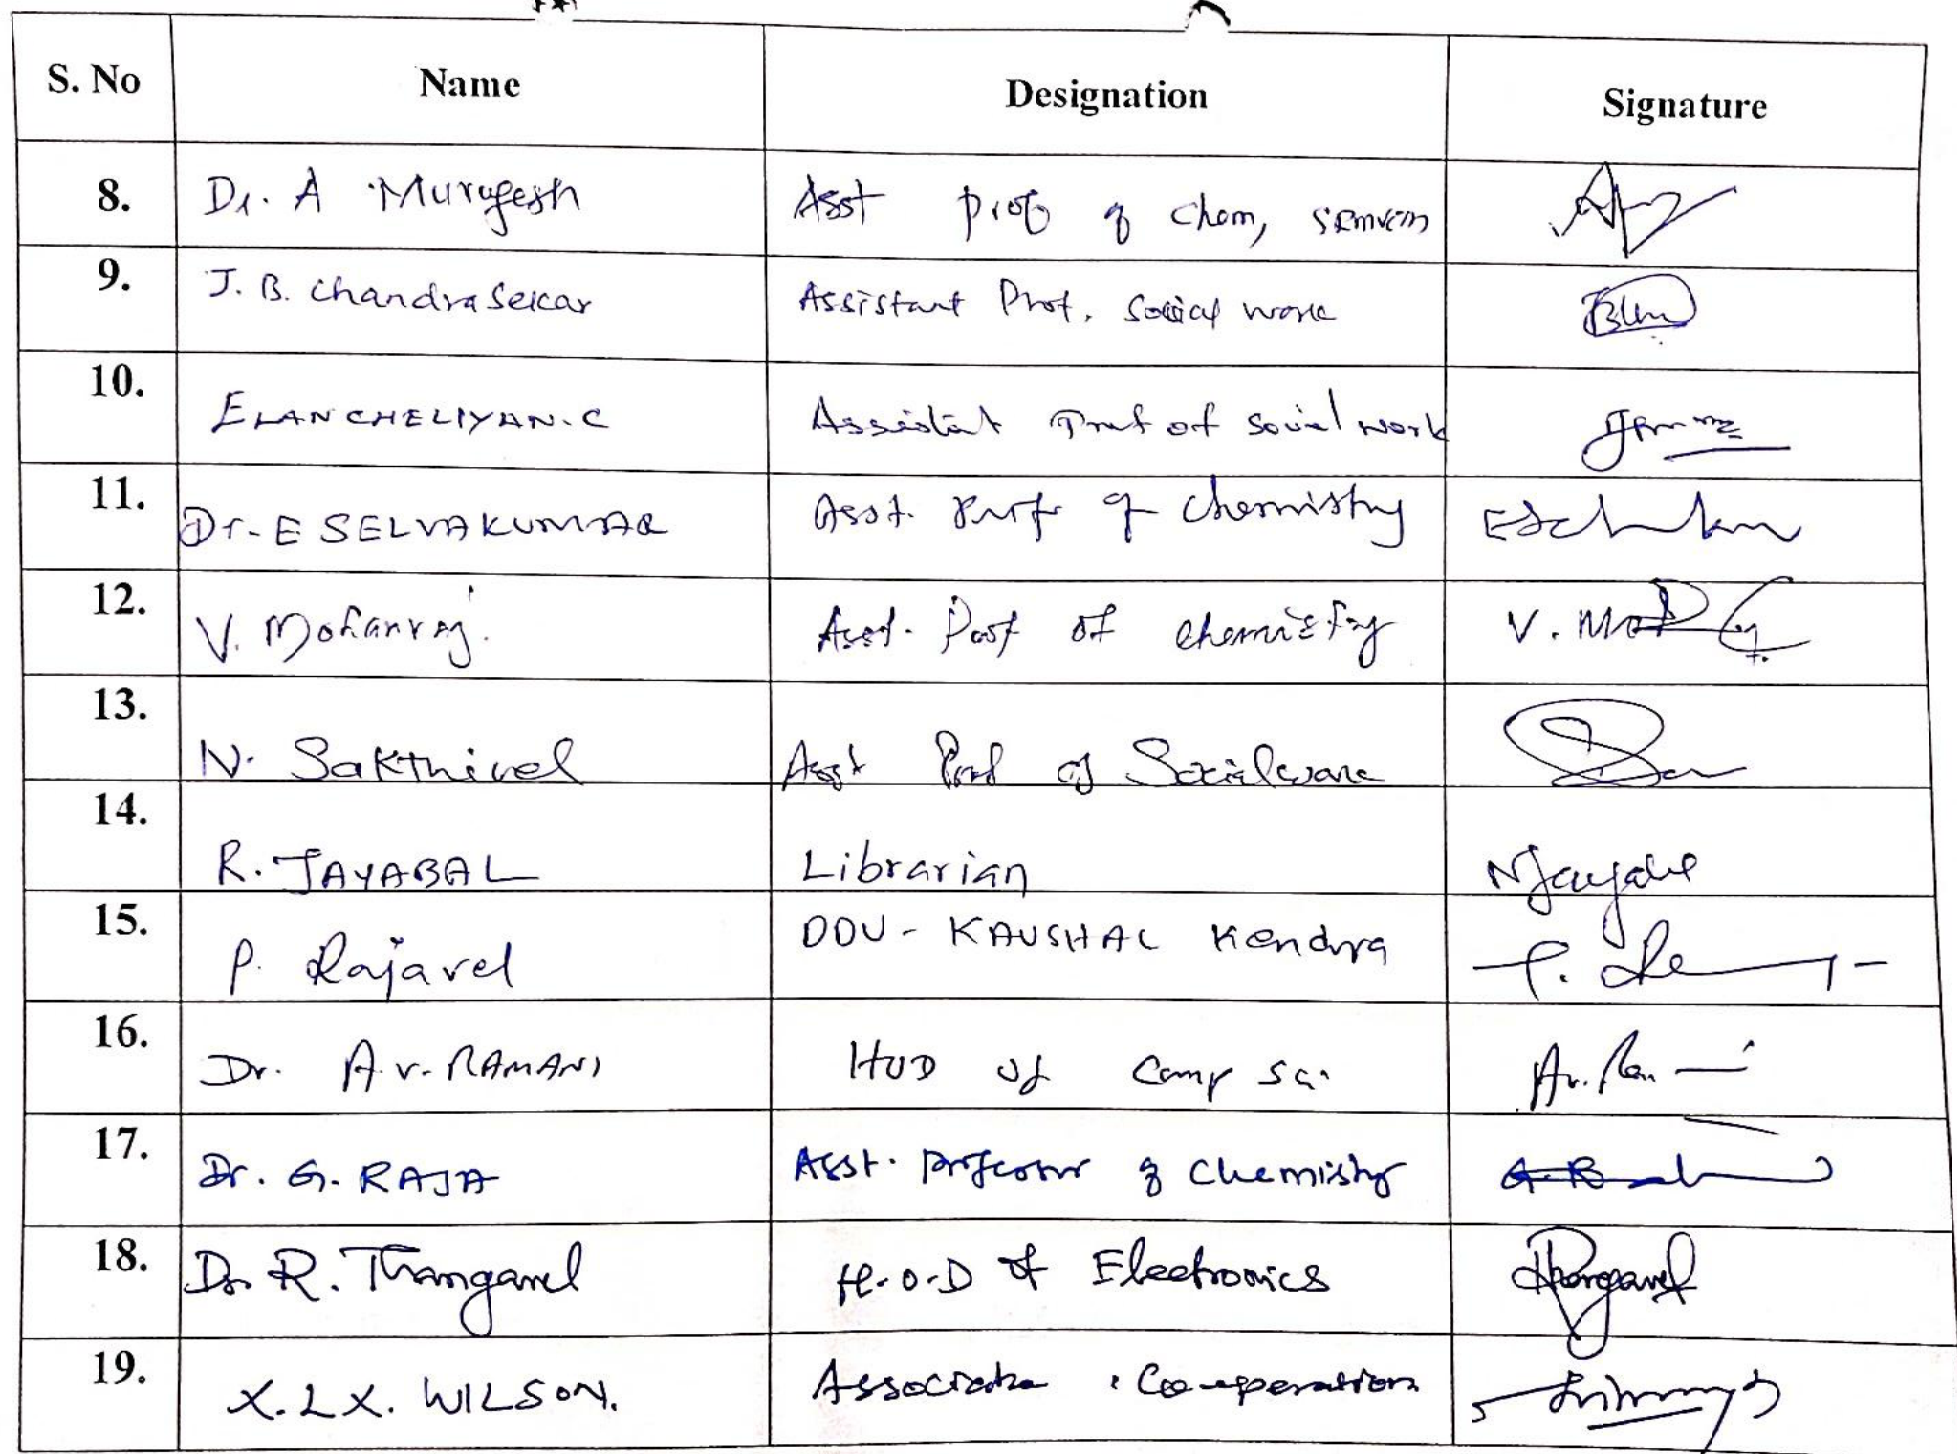 S. No Name Designation Signature
8. Dr. A Murugesh Asst Prof of Chem, SRMVCAS
9. J. B. Chandrasekar Assistant Prof. Social work
10. ELANCHELIYAN.C Assistat Prof of Social work
11. Dr. E SELVAKUMAR Asst. Prof of Chemistry
12. V. Mohanraj. Asst. Prof of chemistry V. Mo
13. N. Sakthivel Asst Prof of Socialwork
14. R. JAYABAL Librarian
15. P. Rajavel DDU - KAUSHAL Kendra
16. Dr. A V. RAMANI HOD of Comp Sci
17. Dr. G. RAJA Asst. professor of Chemistry
18. Dr. R. Thangavel H.O.D of Electronics
19. X.L.X. WILSON. Associate Co-operation